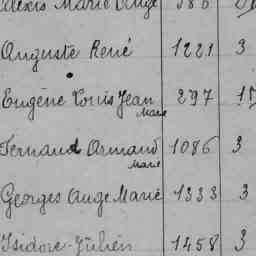 Alexis Marie Ange 586
Auguste René 1221 3
Eugène Louis Jean Marie 297 15
Fernand Armand Marie 1086 3
Georges Ange Marie 1333 3
Isidore-Julien 1458 3